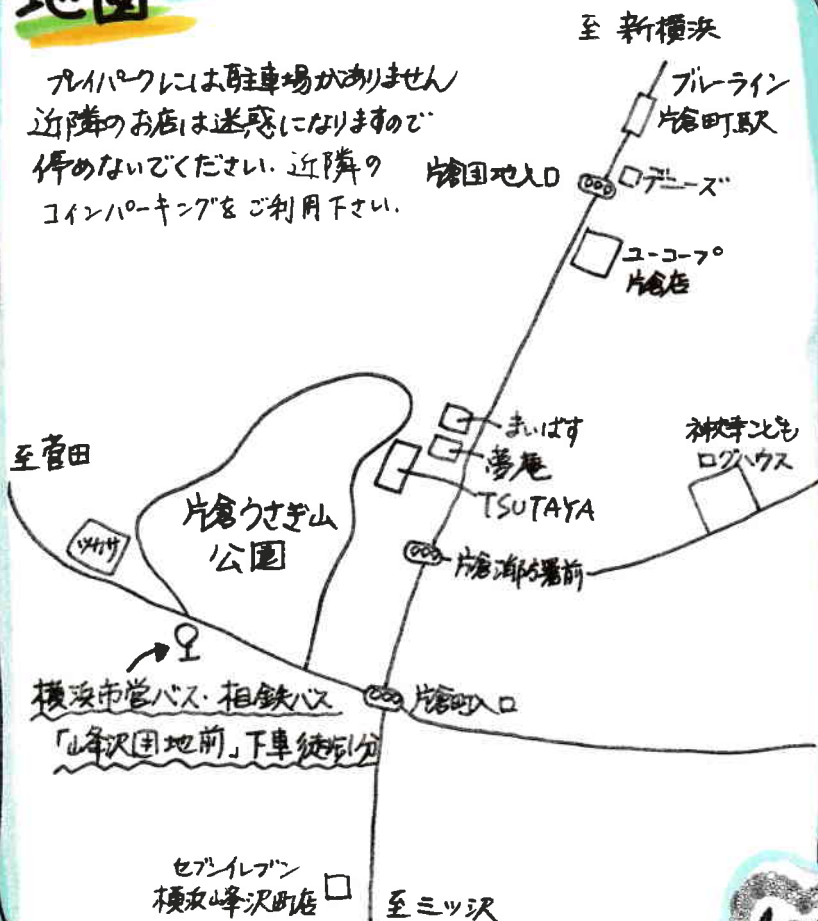 地図
至 新横浜
プレイパークには、駐車場がありません
近隣のお店は迷惑になりますので
停めないでください. 近隣の
コインパーキングをご利用下さい.
ブルーライン
片倉町駅
片倉団地入口
デニーズ
ユーコープ
片倉店
まいばす
夢庵
TSUTAYA
神大寺こども
ログハウス
至菅田
ツカサ
片倉うさぎ山
公園
片倉消防署前
片倉町入口
横浜市営バス・相鉄バス
「峰沢団地前」下車徒歩1分
セブンイレブン
横浜峰沢町店
至三ツ沢